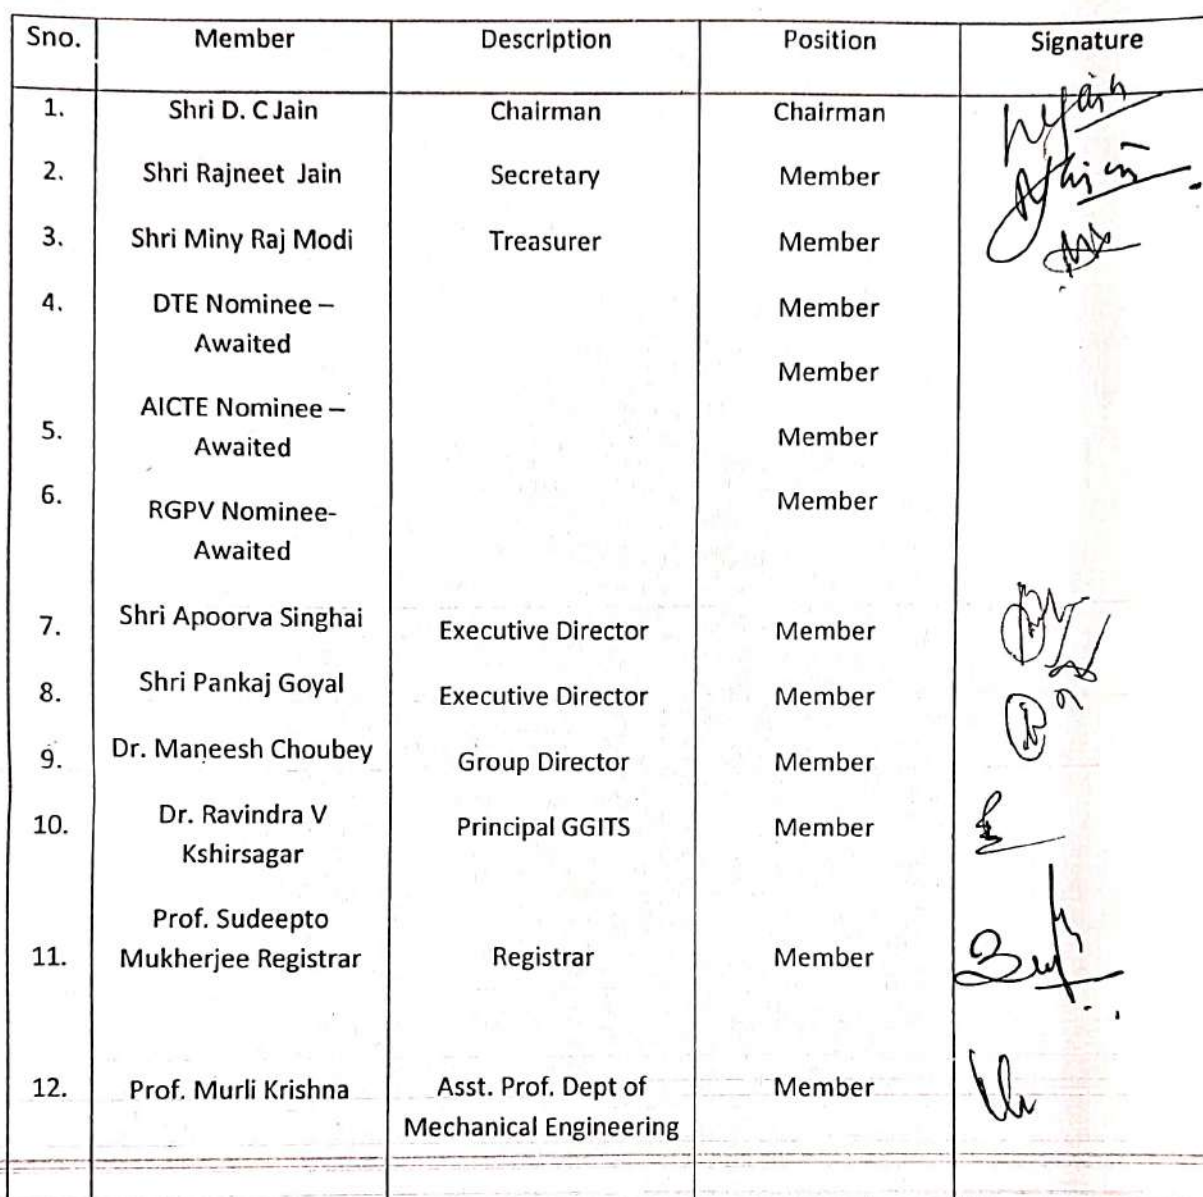 Sno. Member Description Position Signature
1. Shri D. C Jain Chairman Chairman
2. Shri Rajneet Jain Secretary Member
3. Shri Miny Raj Modi Treasurer Member
4. DTE Nominee – Member
Awaited
Member
AICTE Nominee –
5. Awaited Member
6. RGPV Nominee- Member
Awaited
7. Shri Apoorva Singhai Executive Director Member
8. Shri Pankaj Goyal Executive Director Member
9. Dr. Maneesh Choubey Group Director Member
10. Dr. Ravindra V Principal GGITS Member
Kshirsagar
Prof. Sudeepto
11. Mukherjee Registrar Registrar Member
12. Prof. Murli Krishna Asst. Prof. Dept of Member
Mechanical Engineering